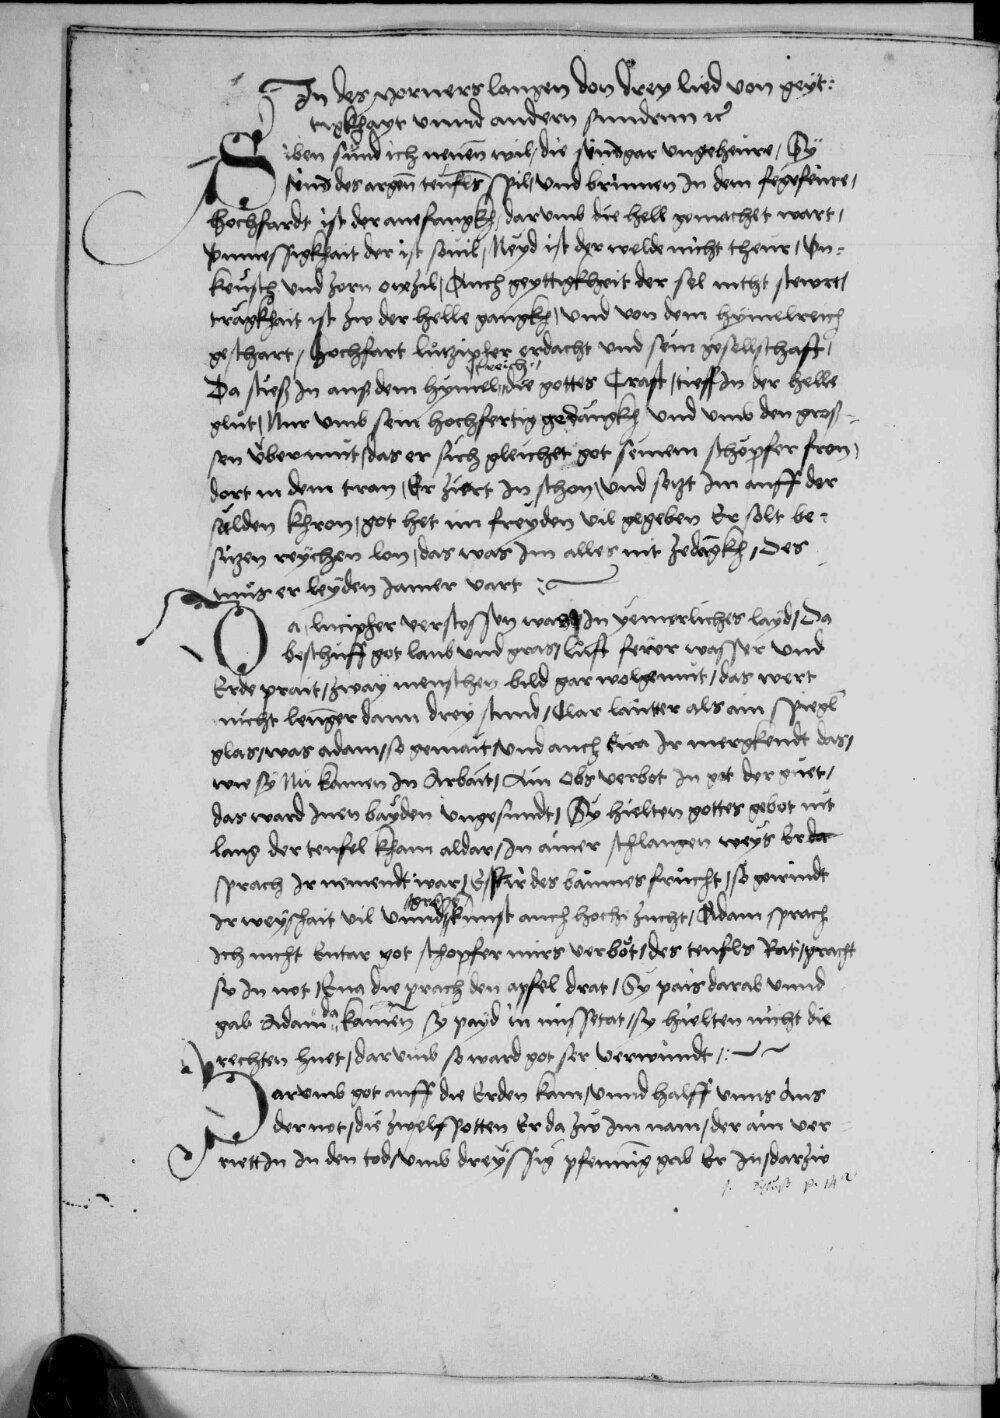 In des Morners langen don drey lied von geyt:
tigkhayt vnnd andern sunden etc
Siben sünd ich nenen wil, die sünd gar vngeheüre, Sy
sünd des argen teüfls spil, vnd brinnen In dem fegefeüre,
hochfardt ist der anefangkh, darumb die hell gemachet wart,
Vnmessigkhait der ist souil, Neyd ist der welde nicht theür, Vn-
keüsch vnd zorn one zil, Auch geyttigkheit der sel nitht stewrt,
tragkhait ist zw der helle gangkh, vnd von dem hymelreich
geschart, hochfart lutzipher erdacht vnd sein geselschafft,
Da stieß In auß dem hymelreich, die gottes Craft, tieff In der helle
gluet, Nur vmb sein hochfertig gedangkh vnd vmb den gros-
sen übermuet, das er sich gleichet got seinem schöpfer fron,
dort in dem tran, Er ziert In schon, vnd setzt Im auff der
sälden khron, got het im freyden vil gegeben Er solt be-
sitzen reychen lon, das was Im alles nit zedangkh, Des
mus er leyden Iamer vart :~
Da lucipher verstossen was In yemerliches layd, Da
beschüff got laub vnd gras, luft feüer wasser vnd
Erde prait, zway menschen bild gar wolgemüt, das wert
nicht lenger dann drey stund, Clar lautter als ain spiegl
glas, was adam, so gemait, vnd auch Eua Ir mergkendt das,
wie sy Nu kamen In Arbait, Ain Obs verbot In got der güet,
das ward Inen bayden vngesundt, Sy hielten gottes gebot nit
lang der teufel kham aldar, In ainer schlangen weys Er da
sprach Ir nemendt war, Esst Ir des baumes frücht, so gewindt
Ir weyshait vil vnnd grosse künst auch hoche zucht, Adam sprach
Ich nicht Entar got schopfer mirs verbot, des teufls Rat, pracht
sy In not, Eua die prach den apfel drat, Sy pais darab vnnd
gab Adam da kamen sy payd in missetat, sy hielten nicht die
rechten huet, darumb so ward got ser verwundt, :~
Darumb got auff die Erden kam, vnnd halff vnns Aus
der not, die zwelf potten Er da zw im nam, der ain ver-
riett In in den tod, vmb dreyssig pfenning gab Er In darzw